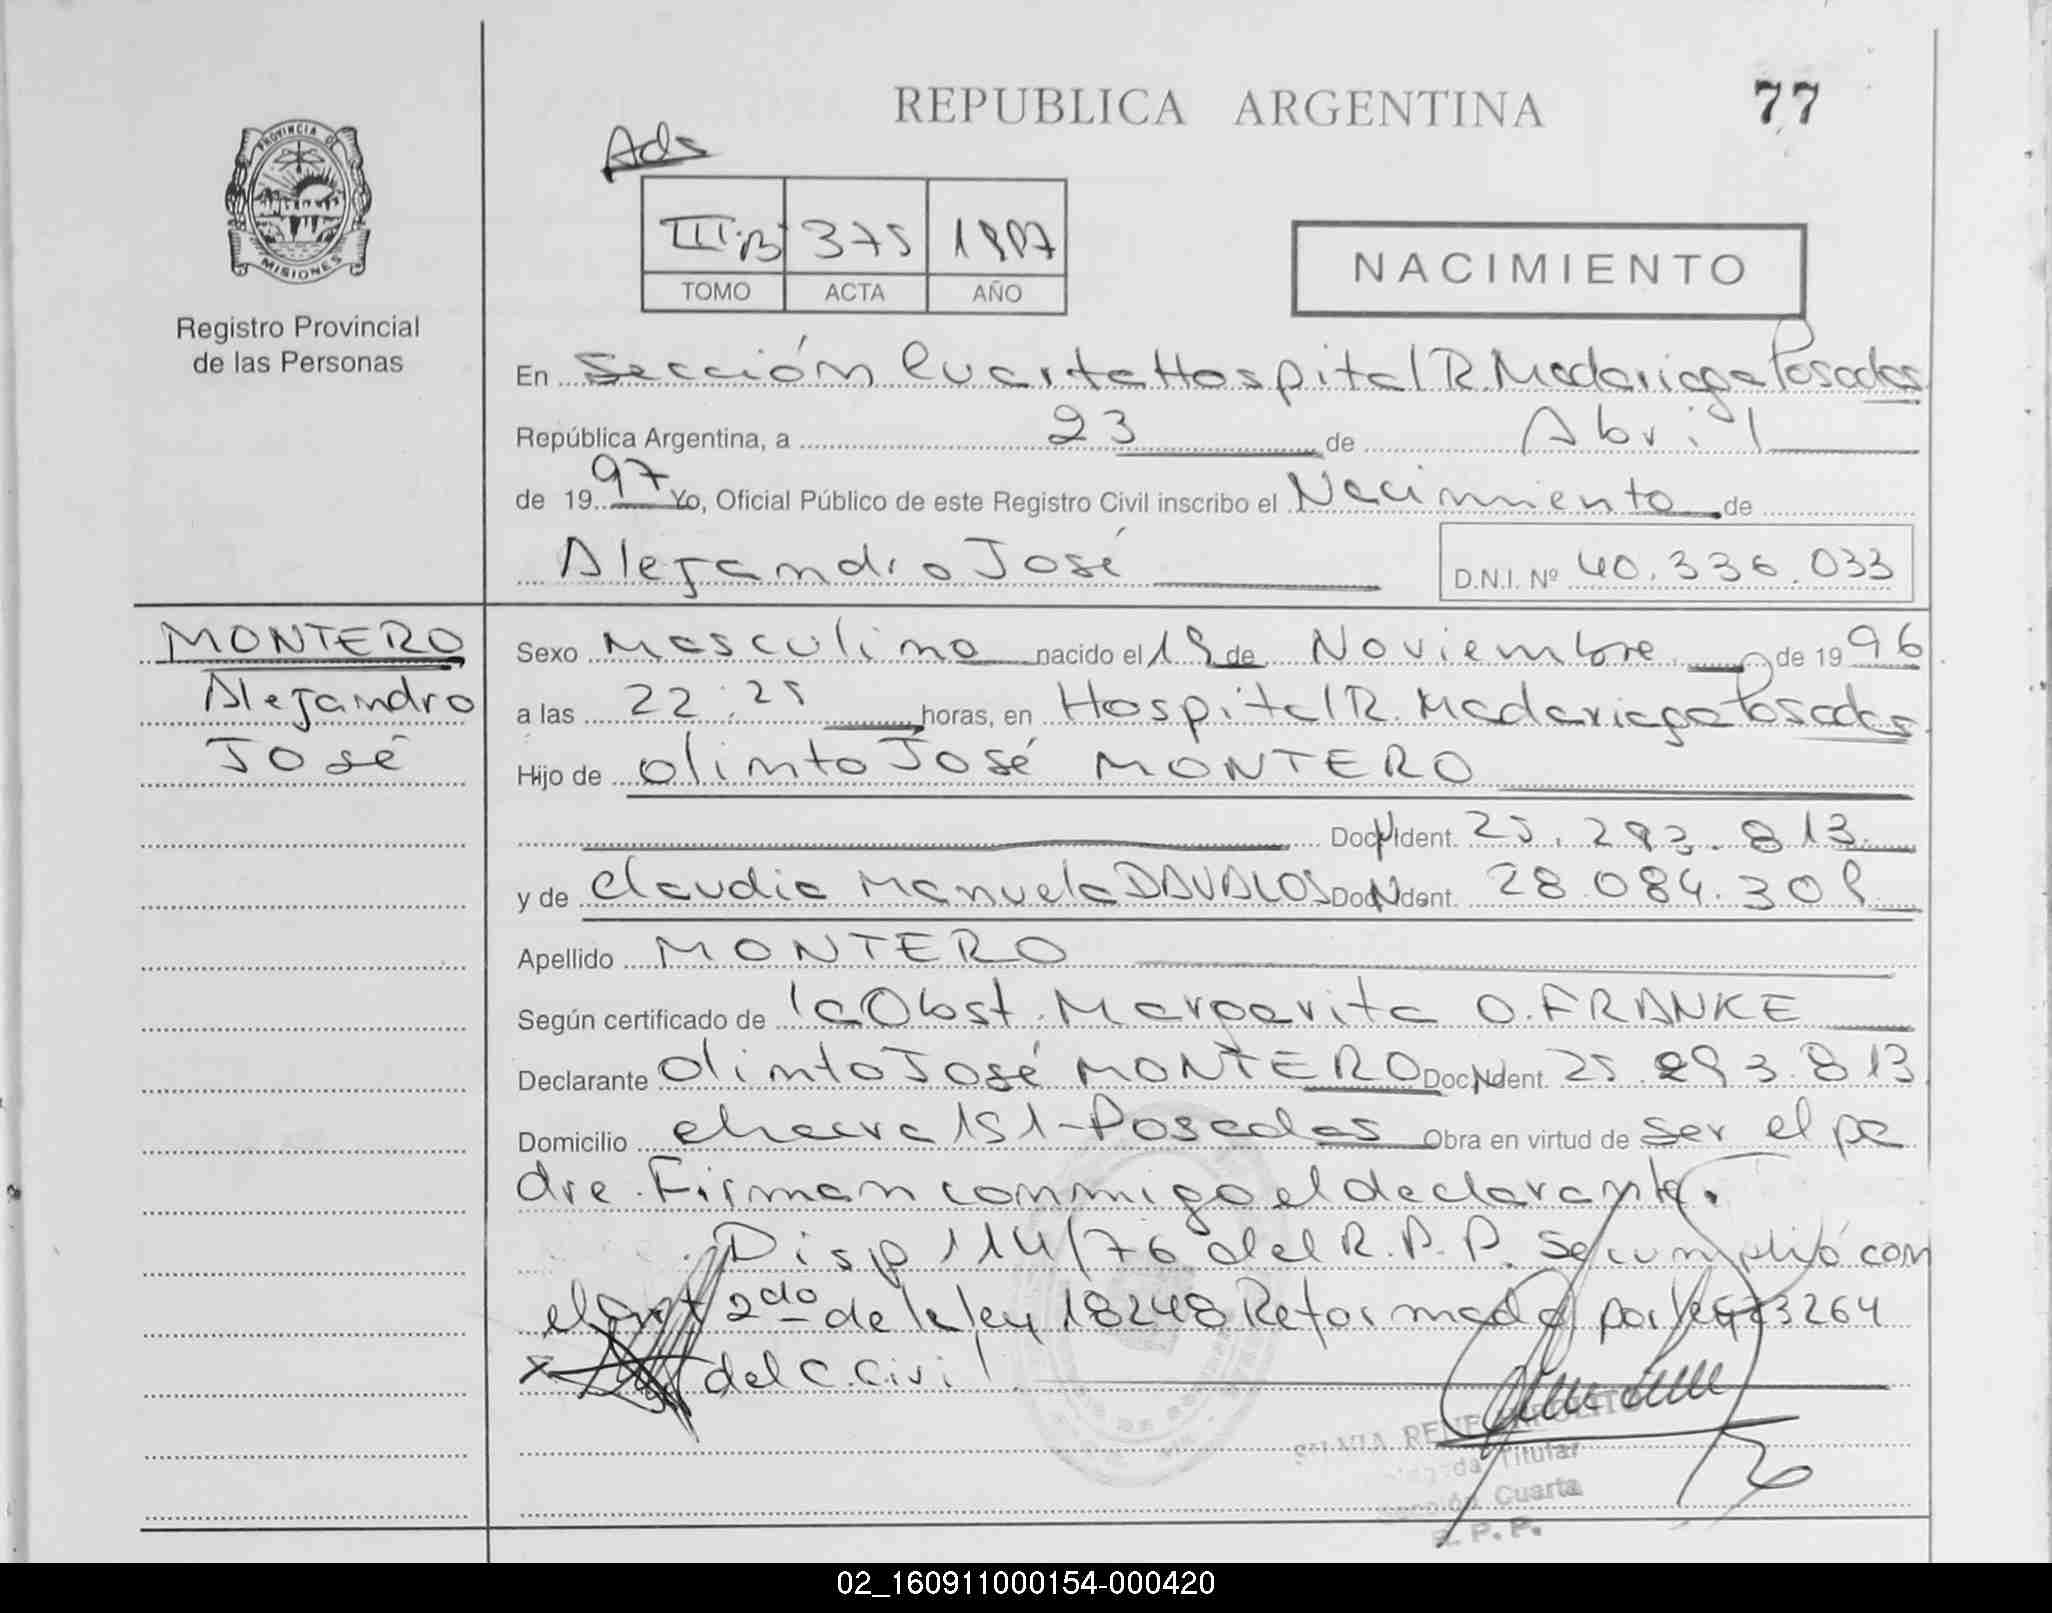 REPUBLICA ARGENTINA
77
Ads
PROVINCIA DE
MISIONES
III.B 375 1997
TOMO ACTA AÑO
NACIMIENTO
Registro Provincial
de las Personas
En Sección Cuarta Hospital R. Madariaga Posadas
República Argentina, a 23 de Abril
de 1997 Yo, Oficial Público de este Registro Civil inscribo el Nacimiento de
Alejandro José D.N.I. Nº 40.336.033
MONTERO
Alejandro
José
Sexo Masculino nacido el 19 de Noviembre de 1996
a las 22:25 horas, en Hospital R. Madariaga Posadas
Hijo de Olinto José MONTERO
Doc. Ident. 25.293.813
y de Claudia Manuela DAVALOS Doc. Ident. 28.084.309
Apellido MONTERO
Según certificado de la Obst. Margarita O. FRANKE
Declarante Olinto José MONTERO Doc. Ident. 25.293.813
Domicilio chacra 151-Posadas Obra en virtud de ser el pa
dre. Firman conmigo el declarante.
Disp 114/76 del R.P.P. Se cumplió con
el Art 2do de la ley 18248 Reformada por 23264
del C. Civil
SILVIA
Titular
Sección Cuarta
R.P.P.
02_160911000154-000420